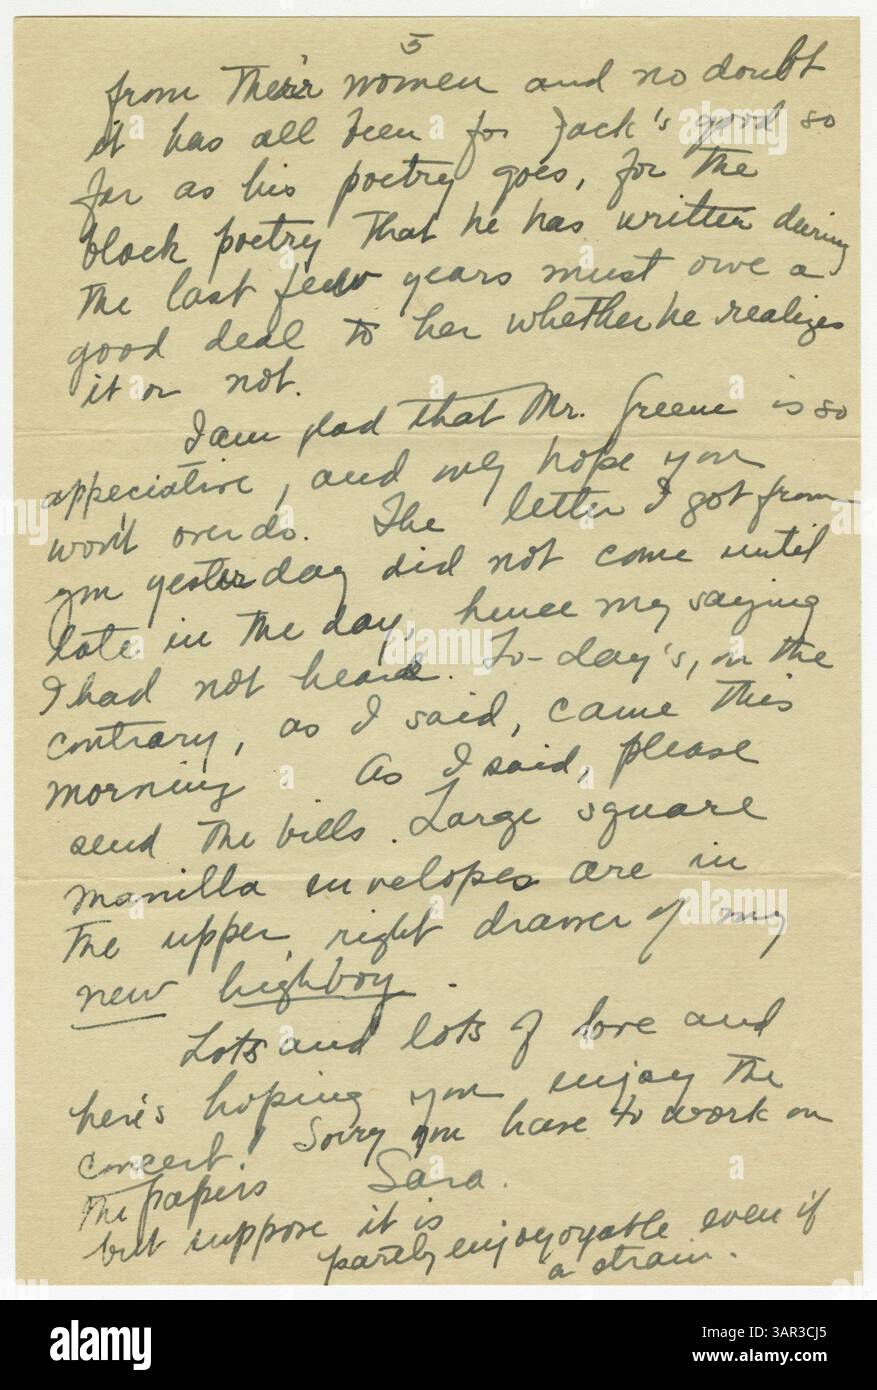 5
from their women and no doubt
it has all been for Jack's good so
far as his poetry goes, for the
block poetry that he has written during
the last few years must owe a
good deal to her whether he realizes
it or not.
I am glad that Mr. Greene is so
appreciative, and only hope you
won't overdo. The letter I got from
you yesterday did not come until
late in the day, hence my saying
I had not heard. To-day's, on the
contrary, as I said, came this
morning. As I said, please
send the bills. Large square
manilla envelopes are in
the upper right drawer of my
new highboy.
Lots and lots of love and
here's hoping you enjoy the
concert! Sorry you have to work on
the papers Sara.
but suppose it is
partly enjoyoyable even if
a strain.
alamy
Image ID: 3AR3CJ5
www.alamy.com